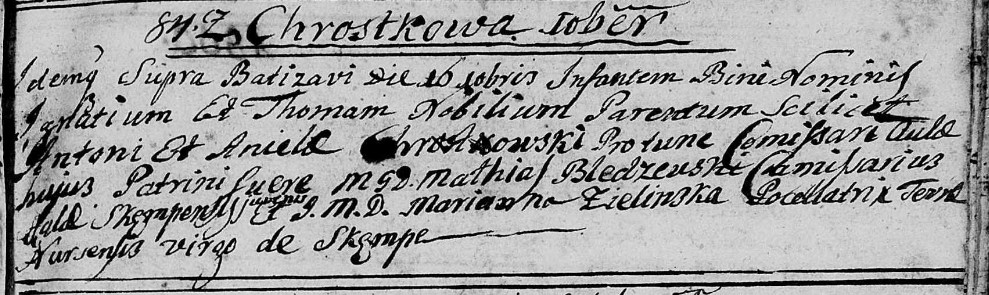 84. Z Chrostkowa 10ber
Idemq Supra Batizavi die 16 10bris Infantem Bini Nominis
Ignatium Et Thomam Nobilium Parentum Scilicet
Antoni Et Anielæ Chrostkowski Protunc Comissari Aulæ
hujus Patrini fuere MGD. Mathias Bledzevski Camissarius
Aulæ Skępensis juvenis Et I. M. D. Marianna Zielinska Pocellatrix Terræ
Nursensis virgo de Skępe